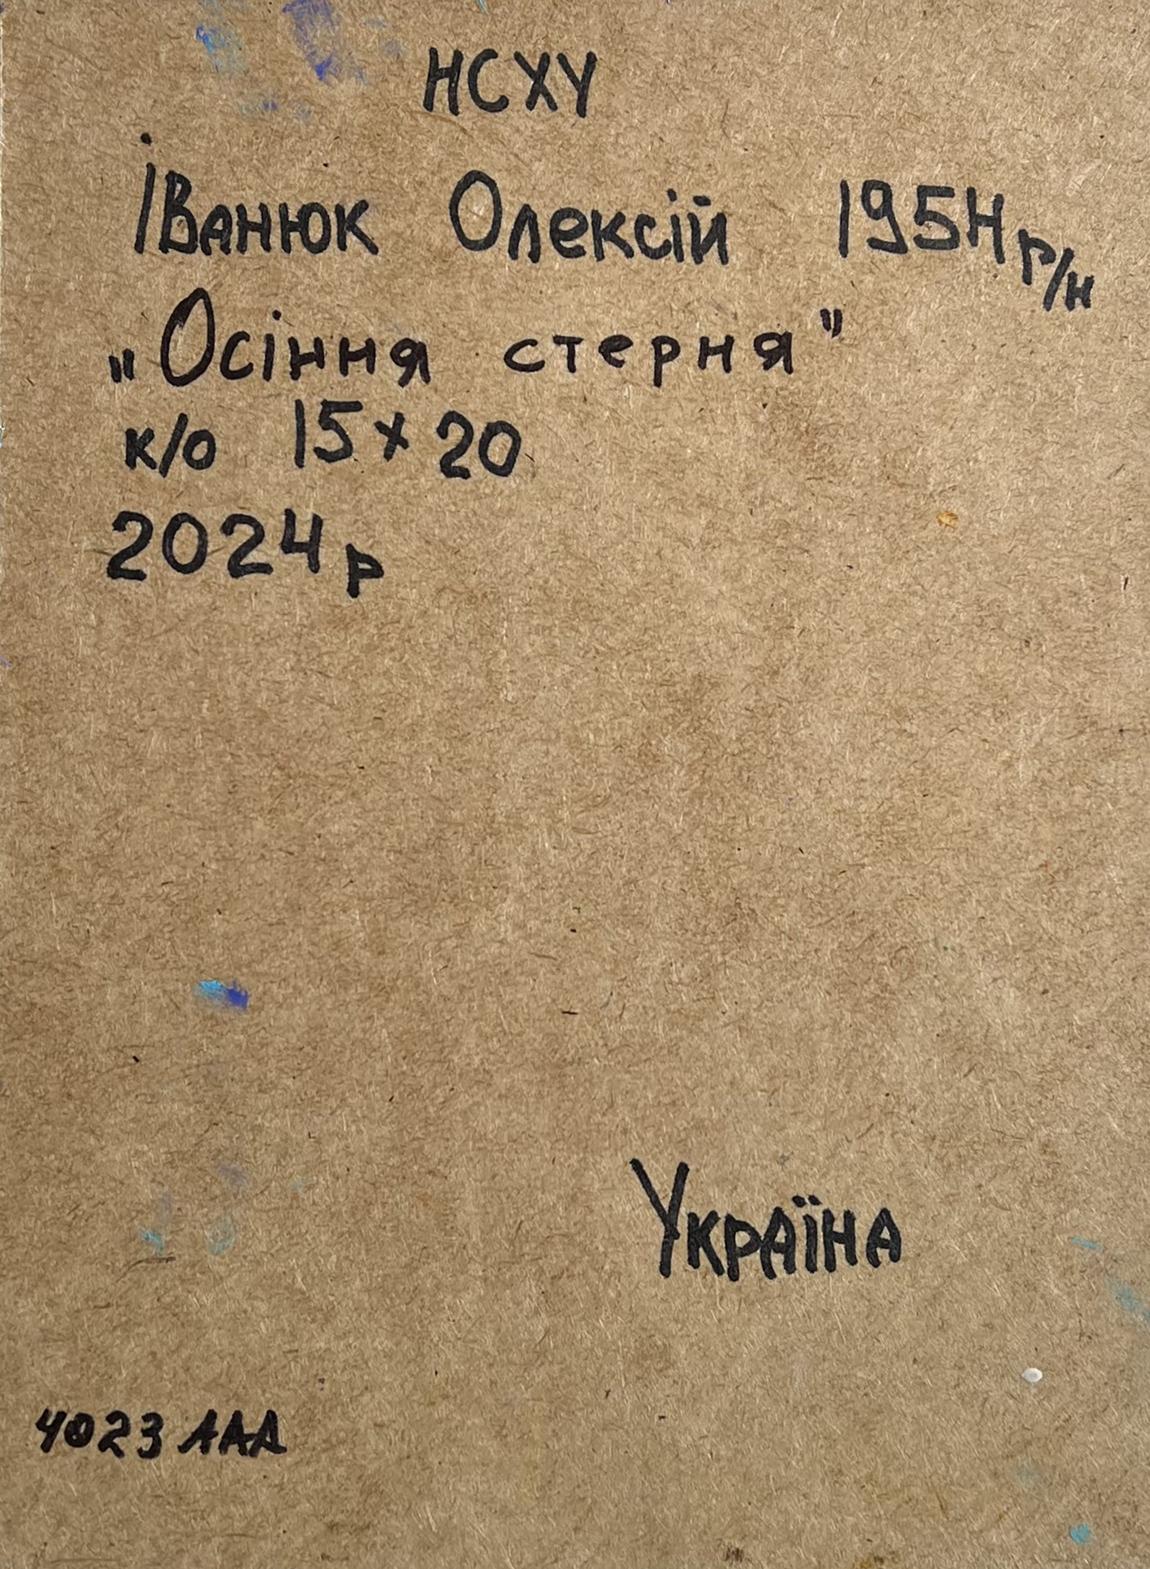 НСХУ
Іванюк Олексій 1954 р/н
„Осіння стерня"
к/о 15×20
2024 р
Україна
4023 ААА